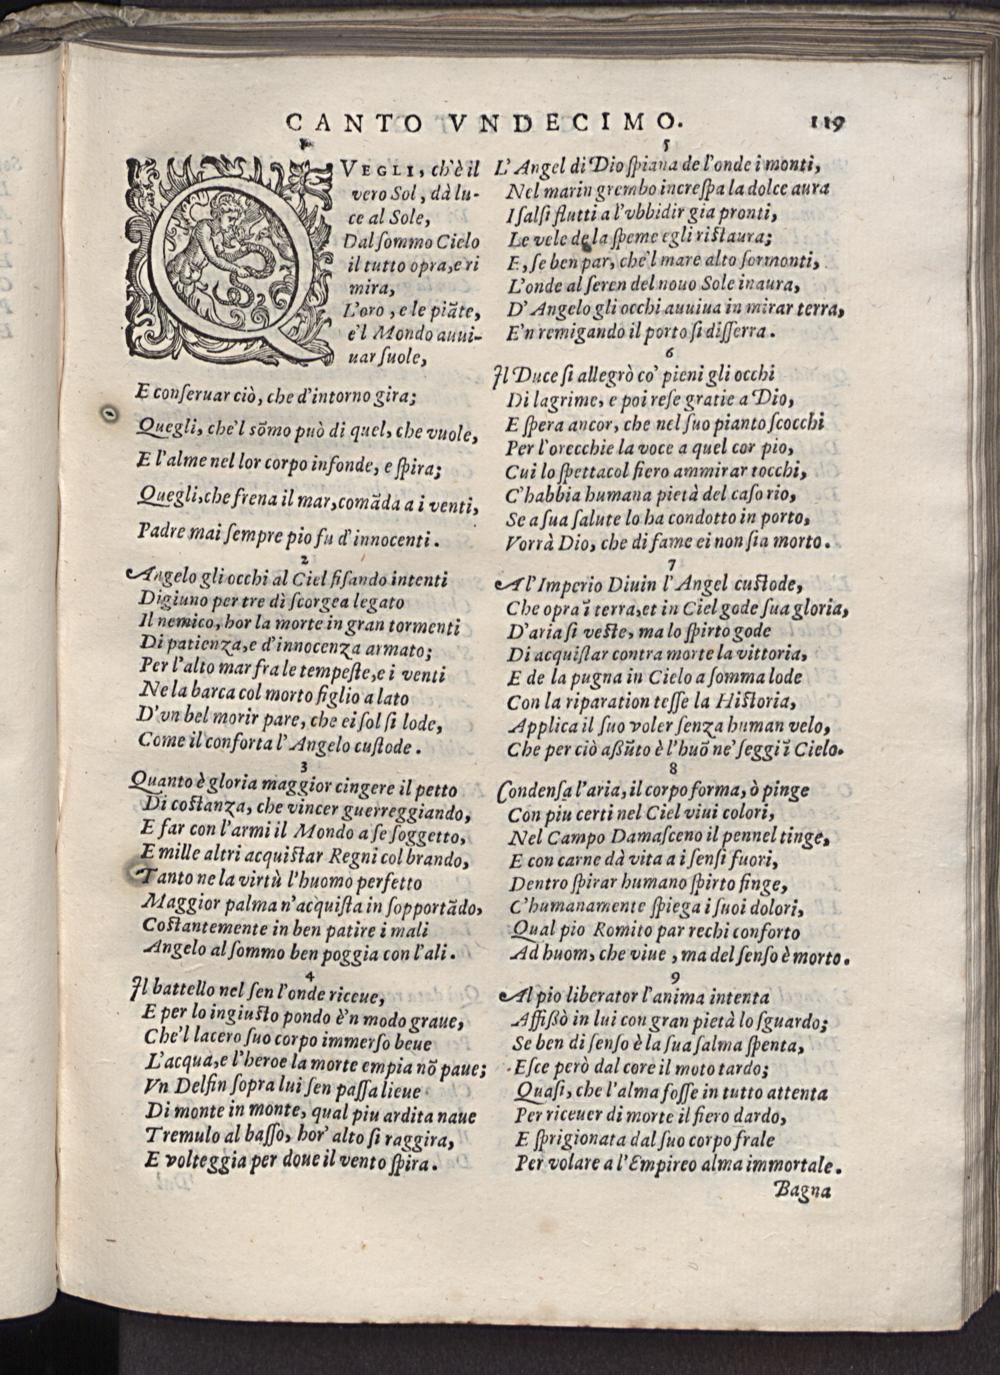 CANTO VNDECIMO. 119
1
QVEGLI, ch'è il
vero Sol, dà lu-
ce al Sole,
Dal sommo Cielo
il tutto opra, e ri
mira,
L'oro, e le piāte,
e'l Mondo auui-
uar suole,
E conseruar ciò, che d'intorno gira;
Quegli, che'l sōmo può di quel, che vuole,
E l'alme nel lor corpo infonde, e spira;
Quegli, che frena il mar, comāda a i venti,
Padre mai sempre pio fu d'innocenti.
2
Angelo gli occhi al Ciel fisando intenti
Digiuno per tre dì scorgea legato
Il nemico, hor la morte in gran tormenti
Di patienza, e d'innocenza armato;
Per l'alto mar fra le tempeste, e i venti
Ne la barca col morto figlio a lato
D'vn bel morir pare, che ei sol si lode,
Come il conforta l'Angelo custode.
3
Quanto è gloria maggior cingere il petto
Di costanza, che vincer guerreggiando,
E far con l'armi il Mondo a se soggetto,
E mille altri acquistar Regni col brando,
Tanto ne la virtù l'huomo perfetto
Maggior palma n'acquista in sopportādo,
Costantemente in ben patire i mali
Angelo al sommo ben poggia con l'ali.
4
Il battello nel sen l'onde riceue,
E per lo ingiusto pondo è'n modo graue,
Che'l lacero suo corpo immerso beue
L'acqua, e l'heroe la morte empia nō paue;
Vn Delfin sopra lui sen passa lieue
Di monte in monte, qual piu ardita naue
Tremulo al basso, hor' alto si raggira,
E volteggia per doue il vento spira.
5
L'Angel di Dio spiana de l'onde i monti,
Nel marin grembo increspa la dolce aura
I salsi flutti a l'vbbidir gia pronti,
Le vele de la speme egli ristaura;
E, se ben par, che'l mare alto sormonti,
L'onde al seren del nouo Sole inaura,
D'Angelo gli occhi auuiua in mirar terra,
E'n remigando il porto si disserra.
6
Il Duce si allegrò co' pieni gli occhi
Di lagrime, e poi rese gratie a Dio,
E spera ancor, che nel suo pianto scocchi
Per l'orecchie la voce a quel cor pio,
Cui lo spettacol fiero ammirar tocchi,
C'habbia humana pietà del caso rio,
Se a sua salute lo ha condotto in porto,
Vorrà Dio, che di fame ei non sia morto.
7
Al'Imperio Diuin l'Angel custode,
Che opra ī terra, et in Ciel gode sua gloria,
D'aria si veste, ma lo spirto gode
Di acquistar contra morte la vittoria,
E de la pugna in Cielo a somma lode
Con la riparation tesse la Historia,
Applica il suo voler senza human velo,
Che per ciò assūto è l'huō ne' seggi ī Cielo.
8
Condensa l'aria, il corpo forma, ò pinge
Con piu certi nel Ciel viui colori,
Nel Campo Damasceno il pennel tinge,
E con carne dà vita a i sensi fuori,
Dentro spirar humano spirto finge,
C'humanamente spiega i suoi dolori,
Qual pio Romito par rechi conforto
Ad huom, che viue, ma del senso è morto.
9
Al pio liberator l'anima intenta
Affißò in lui con gran pietà lo sguardo;
Se ben di senso è la sua salma spenta,
Esce però dal core il moto tardo;
Quasi, che l'alma fosse in tutto attenta
Per riceuer di morte il fiero dardo,
E sprigionata dal suo corpo frale
Per volare a l'Empireo alma immortale.
Bagna